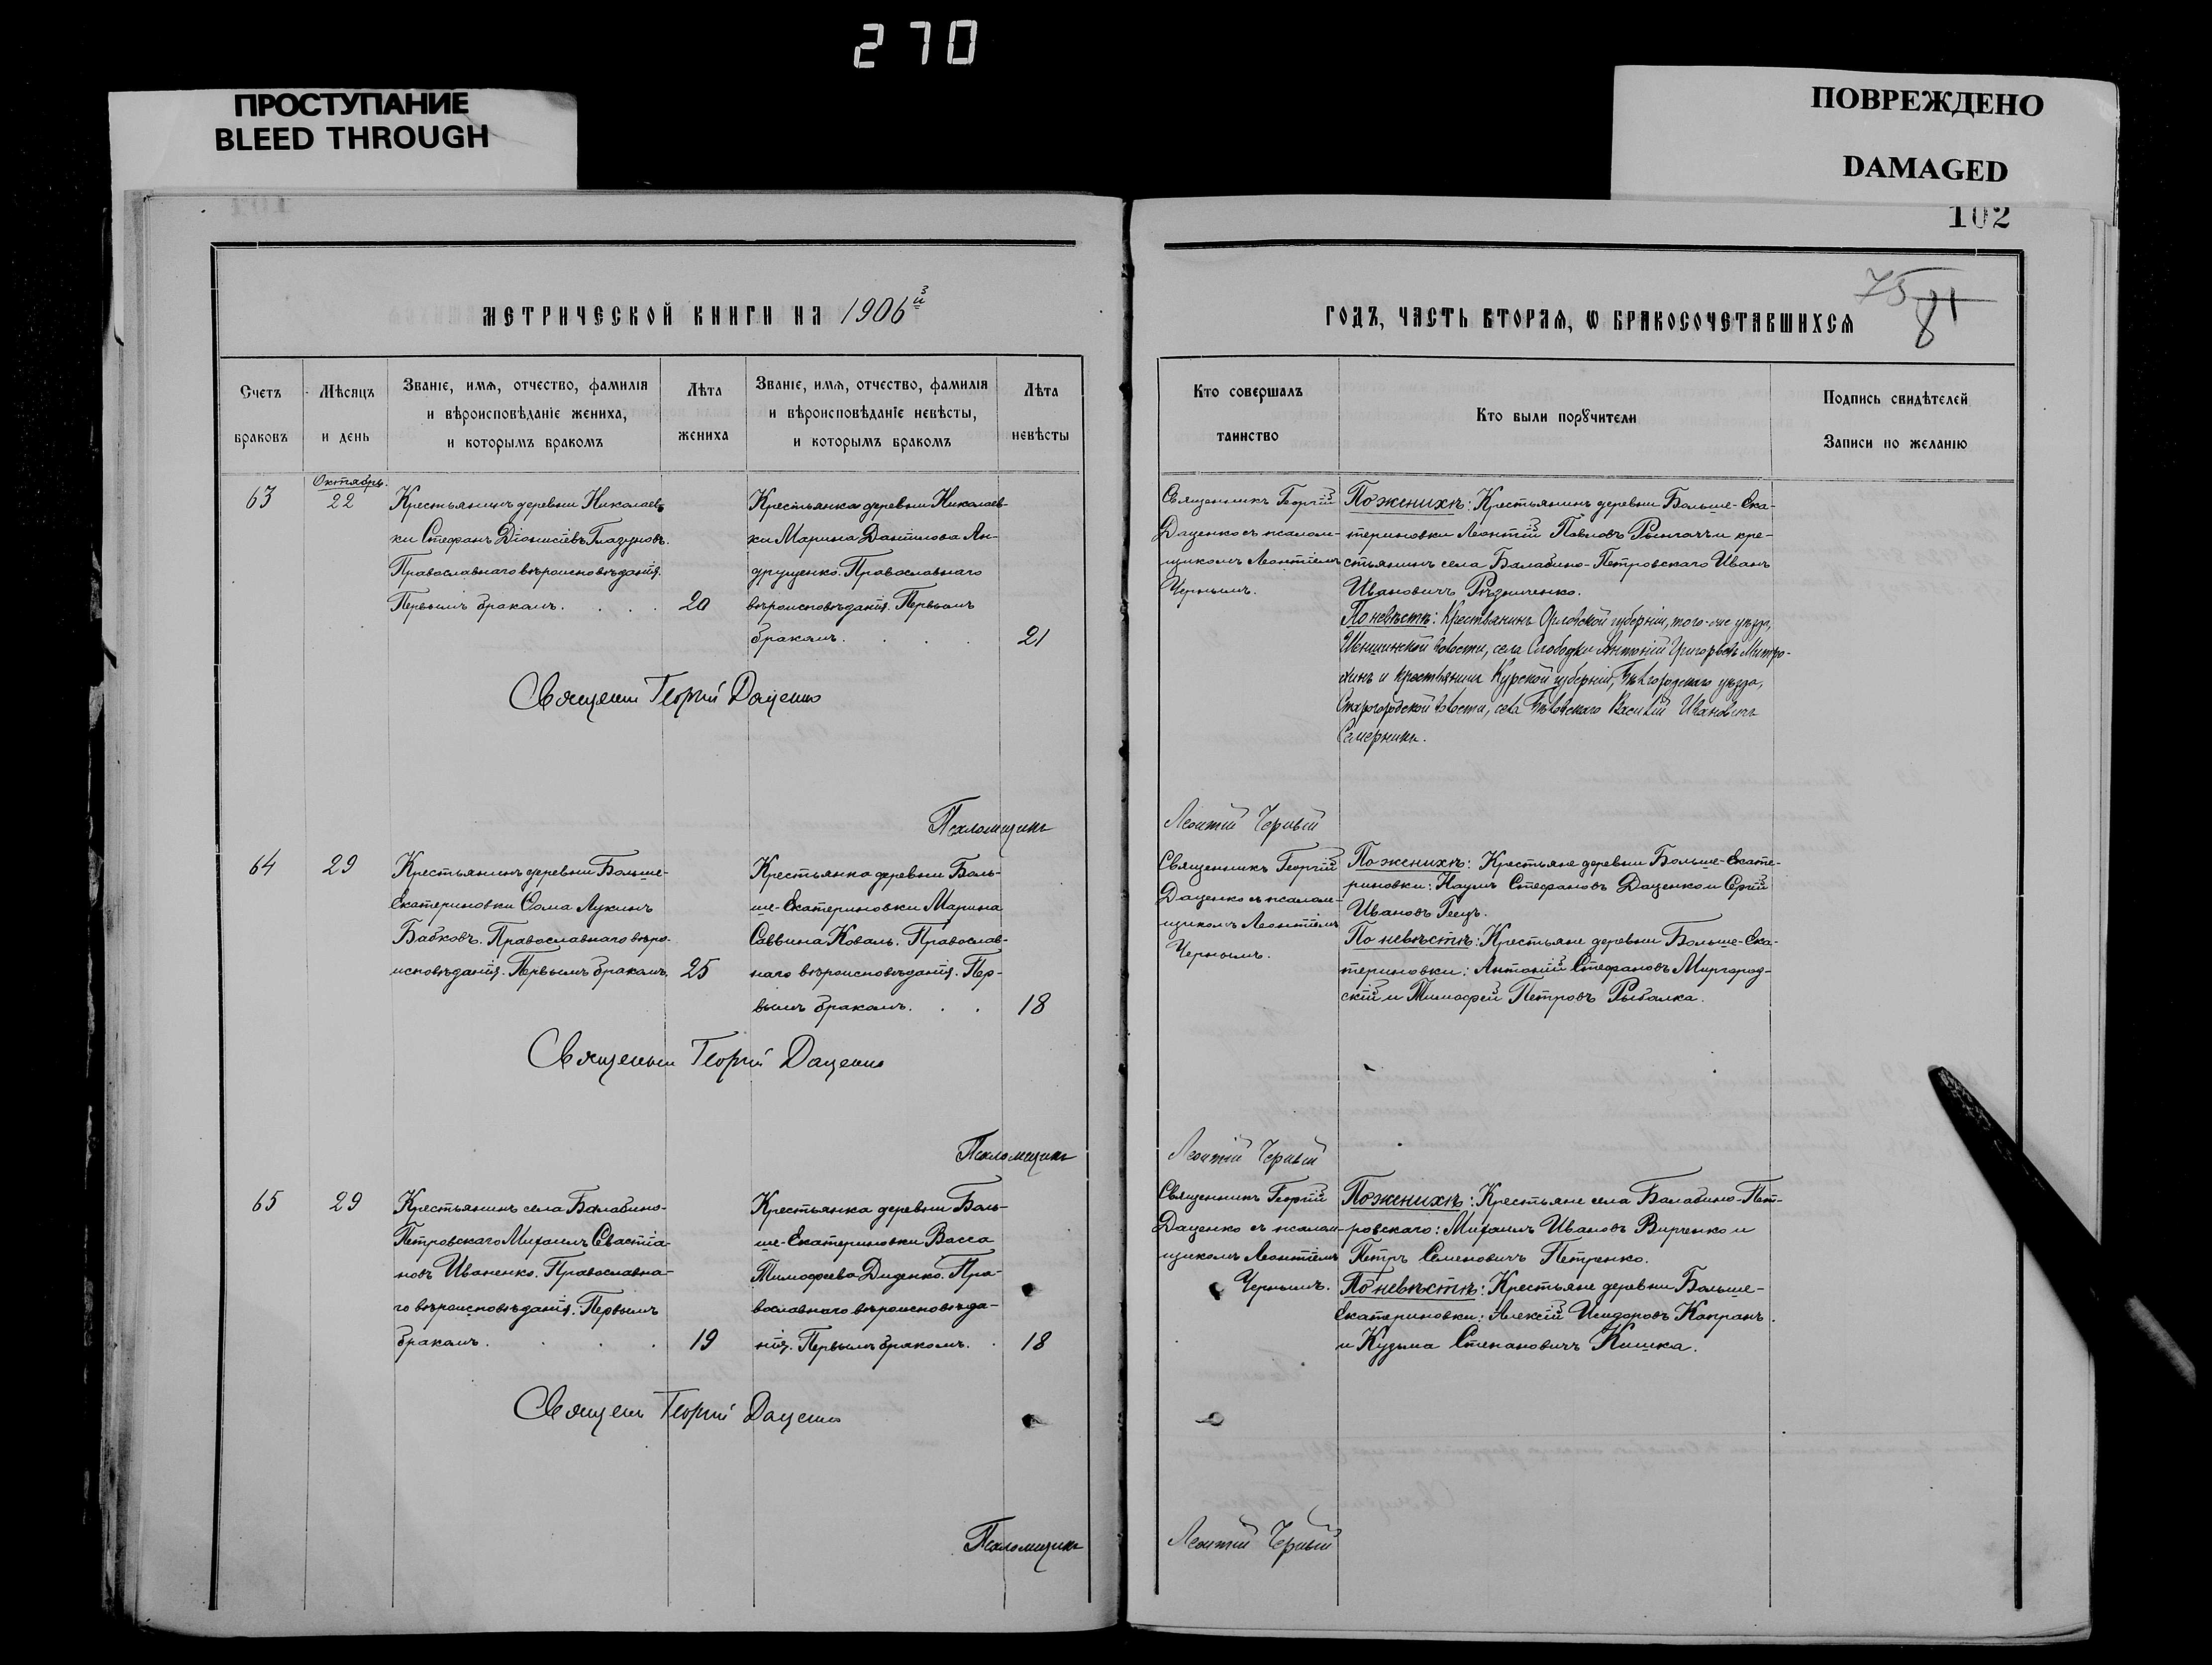 270
ПРОСТУПАНИЕ
BLEED THROUGH
ПОВРЕЖДЕНО
DAMAGED
102
75
81
МЕТРИЧЕСКОЙ КНИГИ НА 1906й
ГОДЪ, ЧАСТЬ ВТОРАЯ, Ѡ БРАКОСОЧЕТАВШИХСЯ
Счетъ
браковъ
Мѣсяцъ
и день
Званіе, имя, отчество, фамилія
и вѣроисповѣданіе жениха,
и которымъ бракомъ
Лѣта
жениха
Званіе, имя, отчество, фамилія
и вѣроисповѣданіе невѣсты,
и которымъ бракомъ
Лѣта
невѣсты
Кто совершалъ
таинство
Кто были порꙋчители
Подпись свидѣтелей
Записи по желанію
63
Октябрь.
22
Крестьянинъ деревни Николаев-
ки Стефанъ Діонисіевъ Глазуновъ.
Православнаго вѣроисповѣданія.
Первымъ бракомъ.
20
Крестьянка деревни Николаев-
ки Марина Даніилова Ан-
друщенко. Православнаго
вѣроисповѣданія. Первымъ
бракомъ.
21
Священникъ Георгій
Даценко съ псалом-
щикомъ Леонтіемъ
Чернымъ.
По женихѣ: Крестьянинъ деревни Больше-Ека-
териновки Леонтій Павловъ и кре-
стьянинъ села Балабино-Петровскаго Иванъ
Ивановичъ Рѣзниченко.
По невѣстѣ: Крестьянинъ Орловской губерніи, того-же уѣзда,
волости, села Слободки Антоній Григорьевъ Митро-
хинъ и крестьянинъ Курской губерніи, Бѣлгородскаго уѣзда,
Старогородской волости, села Василій Ивановичъ
Священникъ Георгій Даценко
Псаломщикъ
Леонтій Черный
64
29
Крестьянинъ деревни Больше-
Екатериновки Ѳома Лукинъ
Бабковъ. Православнаго вѣро-
исповѣданія. Первымъ бракомъ.
25
Крестьянка деревни Боль-
ше-Екатериновки Марина
Саввина Коваль. Православ-
наго вѣроисповѣданія. Пер-
вымъ бракомъ.
18
Священникъ Георгій
Даценко съ псалом-
щикомъ Леонтіемъ
Чернымъ.
По женихѣ: Крестьяне деревни Больше-Екате-
риновки: Наумъ Стефановъ Даценко и Сергій
Ивановъ
По невѣстѣ: Крестьяне деревни Больше-Ека-
териновки: Антоній Стефановъ Миргород-
скій и Тимофей Петровъ Рыбалка.
Священникъ Георгій Даценко
Псаломщикъ
Леонтій Черный
65
29
Крестьянинъ села Балабино-
Петровскаго Михаилъ Свастіа-
новъ Иваненко. Православна-
го вѣроисповѣданія. Первымъ
бракомъ.
19
Крестьянка деревни Боль-
ше-Екатериновки Васса
Тимофеева Диденко. Пра-
вославнаго вѣроисповѣда-
нія. Первымъ бракомъ.
18
Священникъ Георгій
Даценко съ псалом-
щикомъ Леонтіемъ
Чернымъ.
По женихѣ: Крестьяне села Балабино-Пет-
ровскаго: Михаилъ Ивановъ Вирченко и
Петръ Семеновичъ Петренко.
По невѣстѣ: Крестьяне деревни Больше-
Екатериновки: Алексій Исидоровъ Капранъ
и Кузьма Степановичъ Кишка.
Священникъ Георгій Даценко
Псаломщикъ
Леонтій Черный